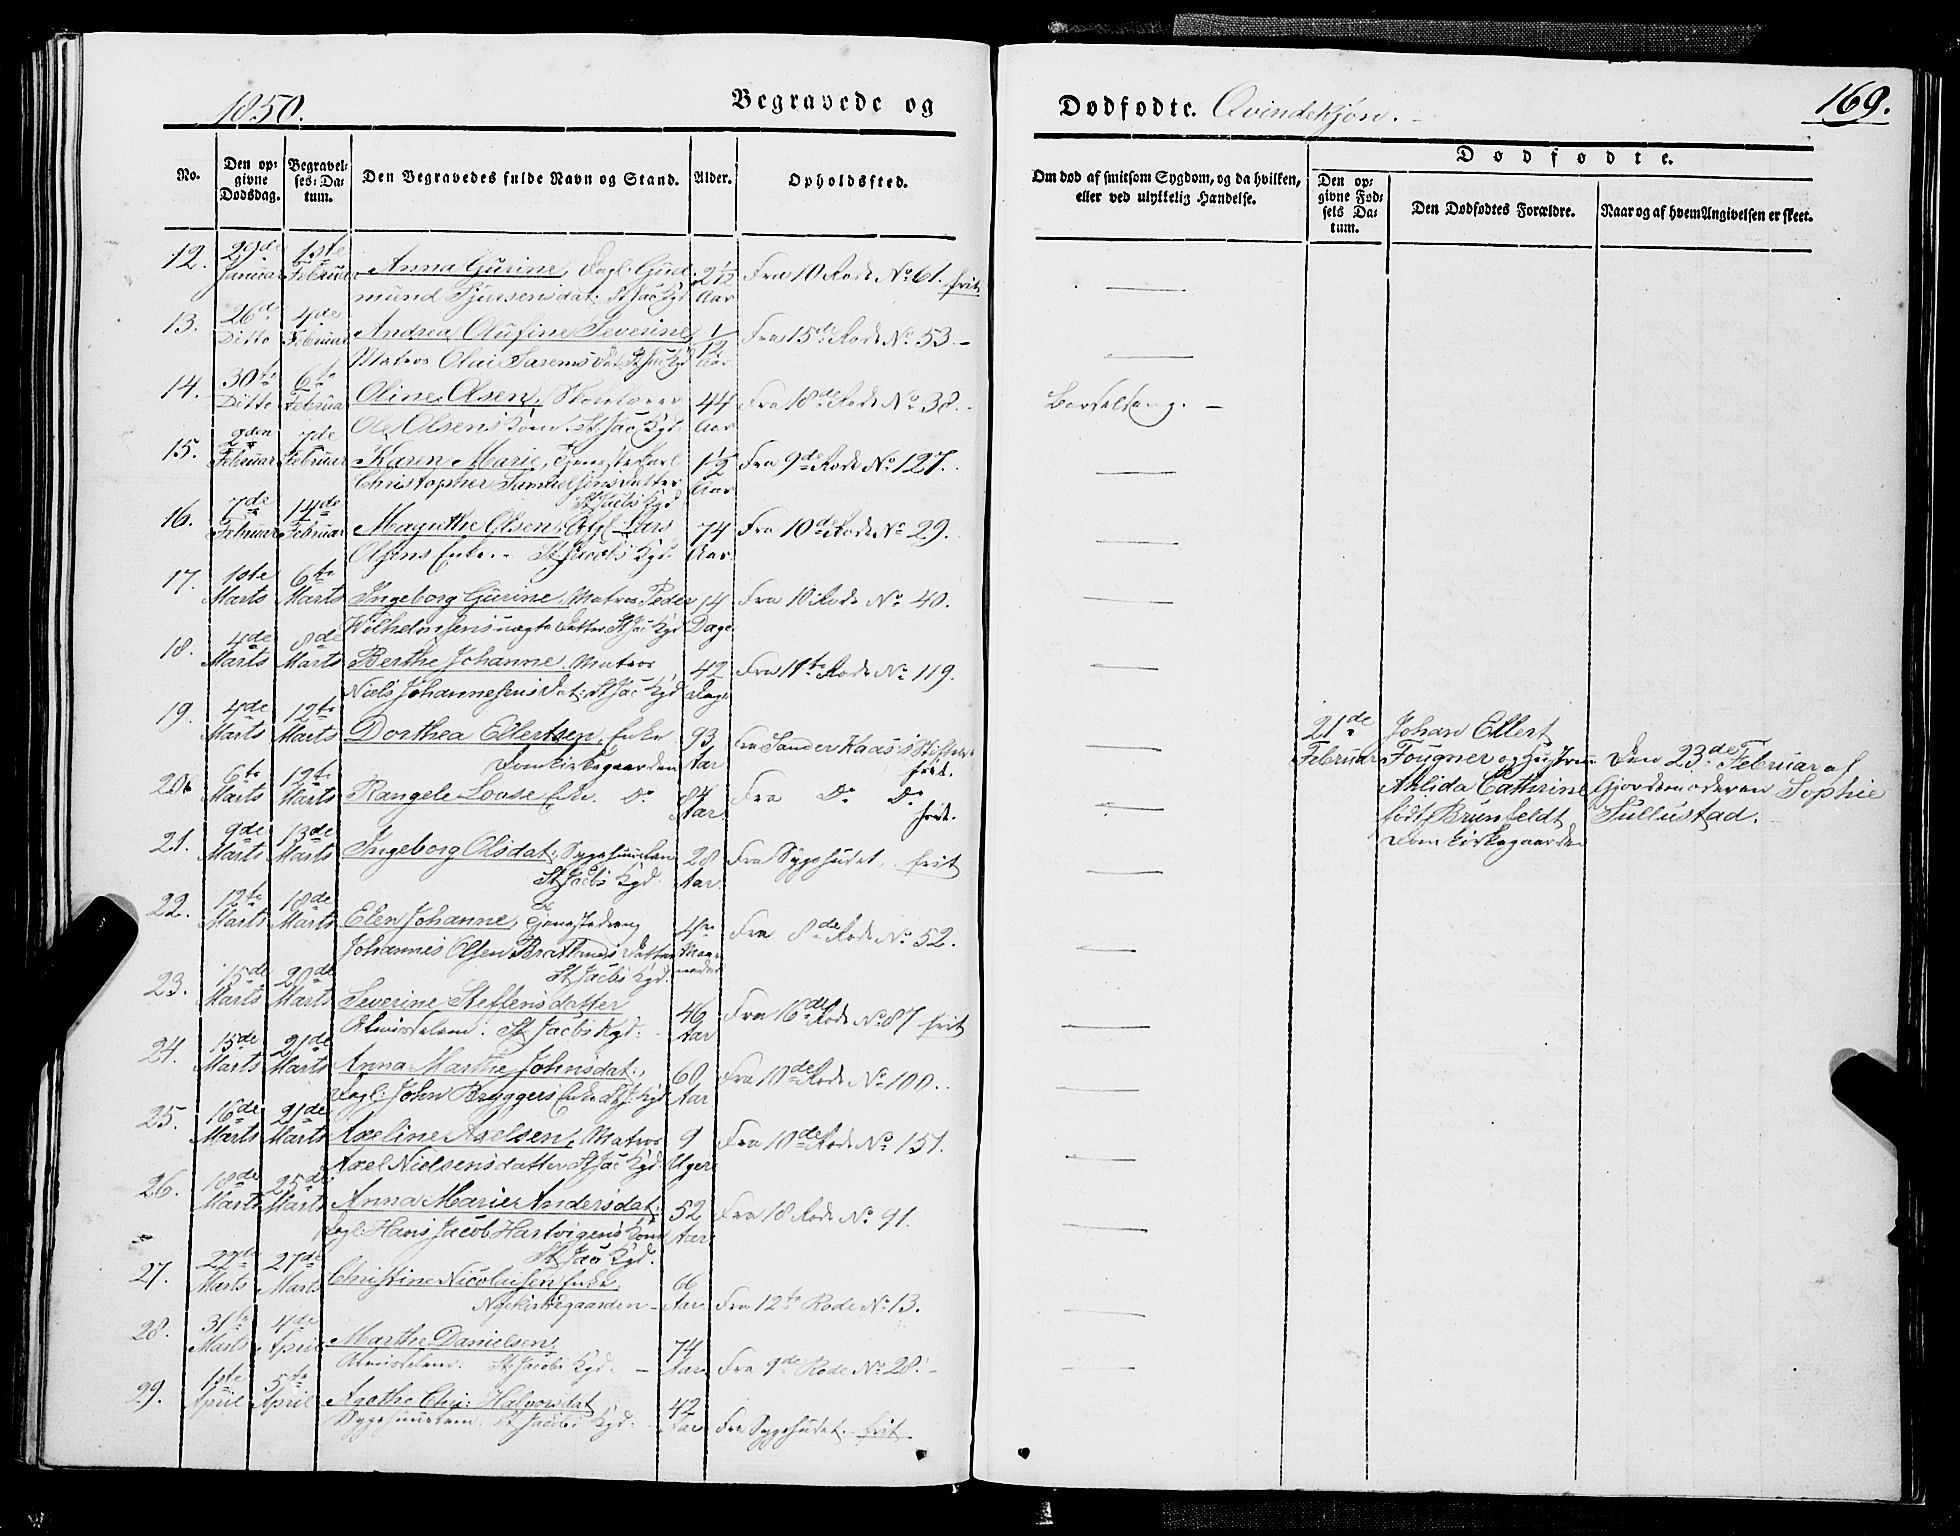 1850. Begravede og Dødfødte. Qvindekjøn. 169.
No.
Den opgivne Dødsdag.
Begravelses-Datum.
Den Begravedes fulde Navn og Stand.
Alder.
Opholdsted.
Om død af smitsom Sygdom, og da hvilken, eller ved ulykkelig Hændelse.
Dødfødte.
Den opgivne Fødsels Datum.
Den Dødfødtes Forældre.
Naar og af hvem Angivelsen er skeet.
12. 29de Januar 1ste Februar Anna Gurine, Dagl: Gud- 2½ Aar Fra 10 Rode No 61. frit
mund Sjursens dat: St Jac Kgd
13. 26de Ditto 4de Februar Andrea Aufine Severine 1/12 Aar Fra 15de Rode No 53.
Matros Olai dat St Jac Kgd
14. 30te Ditto 6te Februar Oline Olsen, 44 Aar Fra 18de Rode No 38. Barselseng.
Ole Olsens Kone. St Jac Kgd.
15. 2den Februar 7de Februar Karen Marie, Tjenestekarl 1½ Aar Fra 9de Rode No 127.
Christopher Samuelsens Datter
St Jacobs Kgd
16. 7de Februar 14de Februar Magnthe Olsen, Afgl. Lars 74 Aar Fra 10de Rode No 29.
Olsens Enke. St Jacobs Kgd.
17. 1ste Marts 6te Marts Ingeborg Gurine, Matros Peder 14 Dage Fra 10 Rode No 40.
Wilhelmsens uægte Datter St Jac Kgd
18. 4de Marts 8de Marts Berthe Johanne, Matros 42 Dage Fra 11te Rode No 119.
Niels Johannesens Dat: St Jac Kgd
19. 4de Marts 12te Marts Dorthea Ellertsen, Enke 93 Aar Fra Sander Kaas's Stiftelse
Domkirkegaarden frit.
21de Februar Johan Ellert
Fougner og Hustrue
Ahlida Cathrine
født Brunfeldt
Domkirkegaarden
Den 23de Februar af
Gjordemoderen Sophie
Sullustad.
20. 6te Marts 12te Marts Rangele Loose Enke. Do 84 Aar Fra Do Do
frit.
21. 9de Marts 13de Marts Ingeborg Olsdat: Sygehuuslem 28 Aar Fra Sygehuset, frit
St Jacobs Kgd.
22. 12te Marts 18de Marts Elen Johanne, Tjenestedreng 4re Maaneder Fra 8de Rode No 52.
Johannes Olsen Datter
St Jacobs Kgd.
23. 15de Marts 20de Marts Severine Steffensdatter 46 Aar Fra 16de Rode No 87 frit
Almisselem. St Jacobs Kgd:
24. 15de Marts 21de Marts Anna Marthe Johnsdat:, 60 Aar Fra 10de Rode No 100.
Dagl: John Bryggers Enke St J: Kgd
25. 16de Marts 21de Marts Axeline Axelsen, Matros 9 Uger Fra 10de Rode No 151.
Axel Nielsens datter St Jac Kgd
26. 18de Marts 25de Marts Anna Marie Andersdat: 52 Aar Fra 18 Rode No 91.
Dagl: Hans Jacob Hartvigens Kone
St Jac Kgd.
27. 22de Marts 27de Marts Christine Nicolaisen Enke, 66 Aar Fra 12te Rode No 13.
Nykirkegaarden
28. 31te Marts 4de April Marthe Danielsen, 74 Aar Fra 9de Rode No 28.
Almisselem. St Jacobs Kgd.
29. 1ste April 5te April Agathe Chr: Halvorsdat 42 Aar Fra Sygehuset. frit.
Sygehuuslem. St Jacobs Kgd.